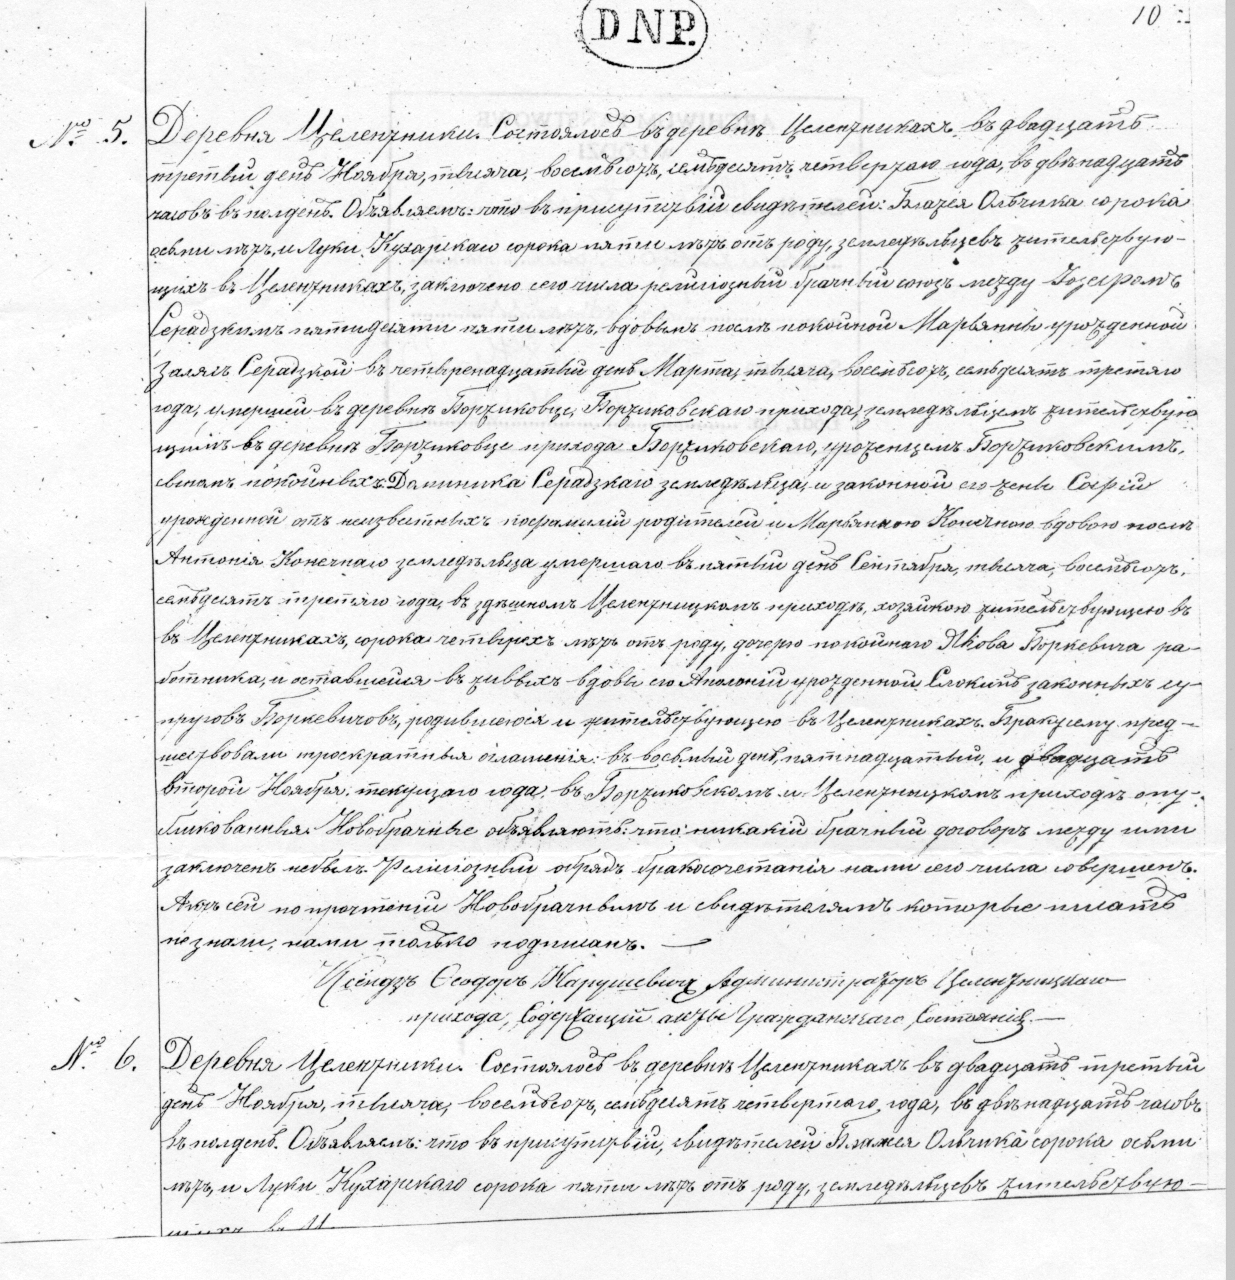 DNP.
10
№ 5. Деревня Целентники. Состоялось въ деревнѣ Целентникахъ въ двадцать
третьій день Ноября, тысяча, восемьсотъ, семьдесятъ четвертаго года, въ двѣнадцать
часовъ въ полдень. Объявляемъ: что въ присутствіи свидѣтелей: Блажея Ольчика сорока
осьми лѣтъ, и Луки Кухарскаго сорока пяти лѣтъ отъ роду, земледѣльцевъ жительствую-
щихъ въ Целентникахъ, заключено сего числа религіозный брачный союзъ между Іозефомъ
Серадзкимъ пятидесяти пяти лѣтъ, вдовымъ послѣ покойной Марьянны урожденной
Заляс Серадзкой въ четырнадцатый день Марта, тысяча, восемьсотъ, семьдесятъ третяго
года, умершей въ деревнѣ Боржиковце, Боржиковскаго прихода, земледѣльцемъ жительствую
щимъ въ деревнѣ Боржиковце прихода Боржиковскаго, уроженцемъ Боржиковскимъ,
сыномъ покойныхъ Доминика Серадзкаго земледѣльца, и законной его жены Софіи
урожденной отъ неизвѣстныхъ пофамиліи родителей и Марьянною Конечною вдовою послѣ
Антонія Конечнаго земледѣльца умершаго въ пятый день Сентября, тысяча, восемьсотъ,
семьдесятъ третяго года, въ здѣшномъ Целентницкомъ приходѣ, хозяйкою жительствующею въ
въ Целентникахъ, сорока четырехъ лѣтъ отъ роду, дочерью покойнаго Якова Боркевича ра-
ботника, и оставшейся въ живыхъ вдовы его Аполоніи урожденной законныхъ су-
пруговъ Боркевичовъ, родившеюся и жительствующею въ Целентникахъ. Браку сему пред-
шествовали троекратныя оглашенія: въ восьмый день, пятнадцатый, и двадцать
второй Ноября, текущаго года, въ Боржиковскомъ и Целентницкомъ приходѣ опу-
бликованныя. Новобрачные объявляютъ: что никакій брачный договоръ между ими
заключенъ небылъ. Религіозный обрядъ бракосочетанія нами сего числа совершенъ.
Актъ сей по прочтеніи Новобрачнымъ и свидѣтелямъ которые писать
незнали, нами только подписанъ. —
Ксёндзъ Ѳеодоръ Карушевичъ Администраторъ Целентницкаго
прихода, Содержащій акты Гражданскаго Состоянія —
№ 6. Деревня Целентники. Состоялось въ деревнѣ Целентникахъ въ двадцать третьій
день Ноября, тысяча, восемьсотъ, семьдесятъ четвертаго, года, въ двѣнадцать часовъ
въ полдень. Объявляемъ: что въ присутствіи, свидѣтелей Блажея Ольчика сорока осьми
лѣтъ, и Луки Кухарскаго сорока пяти лѣтъ отъ роду, земледѣльцевъ жительствую-